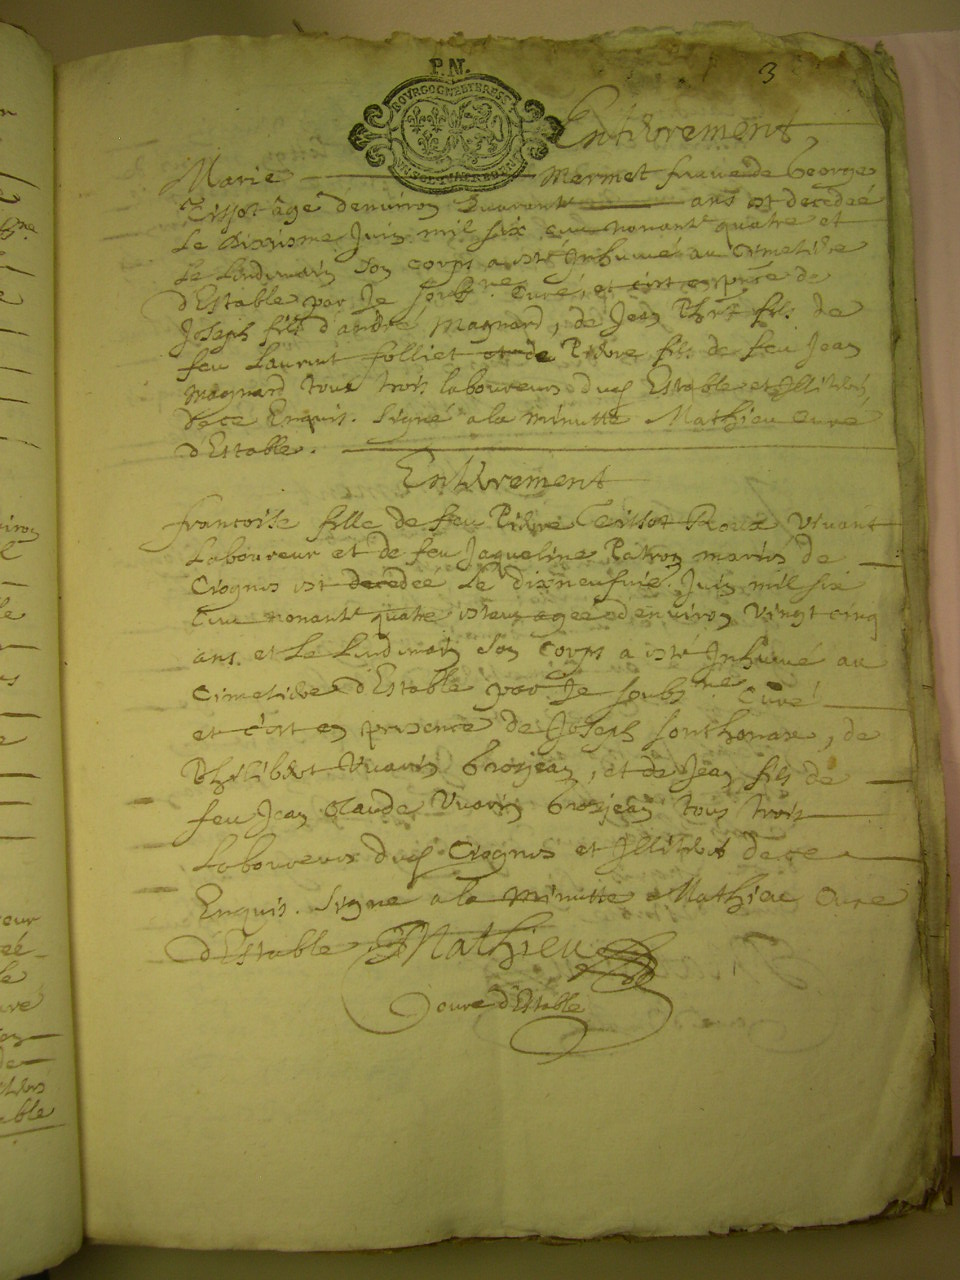 P.N.
3
BOVRGOGNE ET BRESSE
Enterrement
Marie Mermet feme de George
Tissot âgé d'enuiron Quarante ans est decedeé
Le Dixiesme Juin mil six cens nonante quatre et
Le Lendemain Son corps a esté Inhumé au Cimetiere
d'Estable par Je soub.ne Curé, et c'est en pñce de
Joseph fils d'andré Magnard, de Jean fils de
feu Laurent folliet et de Pierre fils de feu Jean
Magnard tous trois laboureurs dud Estable et Illiterés
de ce Enquis. Signé a la minutte Mathieu Curé
d'Estable.
Enterrement
francoise fille de feu Pierre Teissot Roux Vivant
Laboureur et de feu Jaqueline Patron mariés de
Crognis est decedée Le dixneufuie. Juin mil six
Cens nonante quatre estant agée d'environ vingt cinq
ans. et Le Lendemain Son Corps a esté Inhumé au
Cimetiere d'Estable par Je soubs.ne Curé
et c'est en presence de Joseph Sonthonax, de
Philibert Vuarin Grosjean, et de Jean fils de
feu Jean Claude Vuarin Grosjean tous trois
Laboureurs dud Crognis et Illiterés de ce
Enquis. Signé a la Minutte Mathieu Curé
d'Estable Mathieu
curé d'Estable